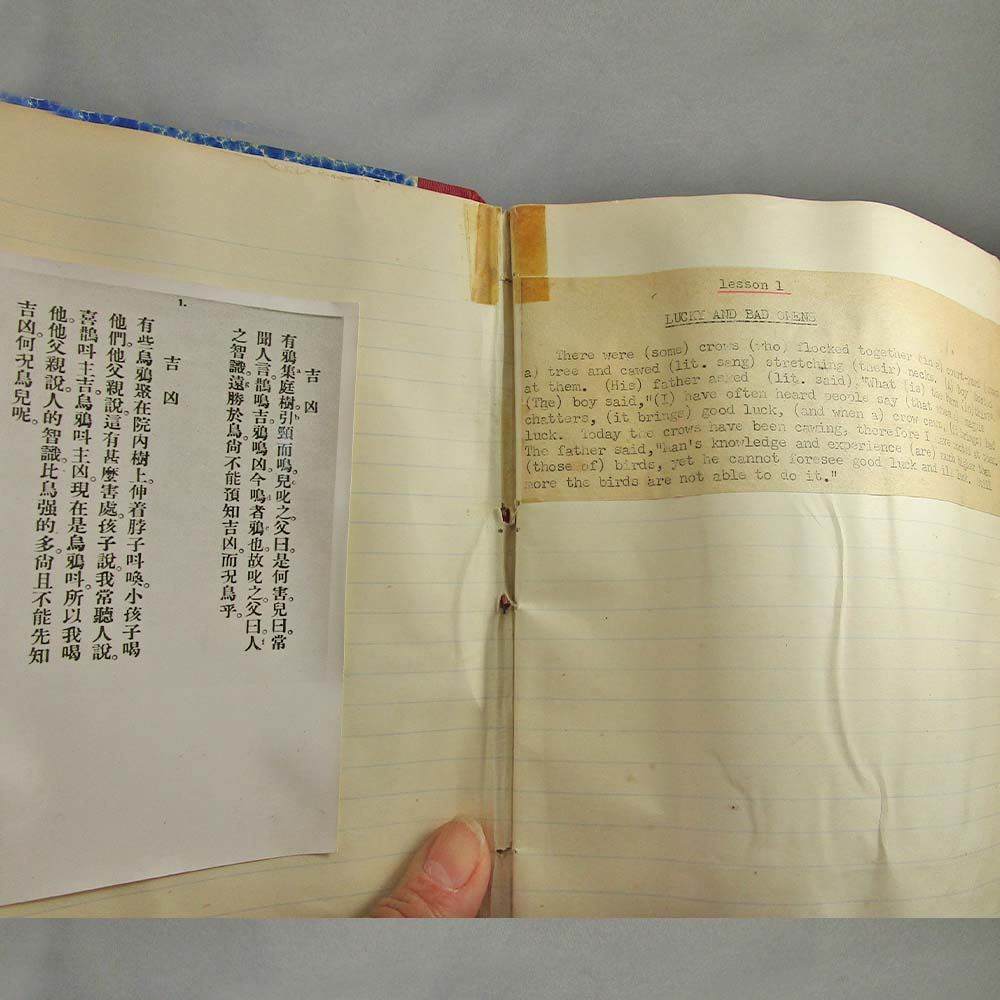 1.
吉凶
有鴉集庭樹引頸而鳴。兒叱之。父曰是何害。兒曰常
聞人言。鵲鳴吉。鴉鳴凶。今鳴者鴉也。故叱之。父曰。人
之智識遠勝於鳥。尙不能預知吉凶。而况鳥乎。
吉凶
有些烏鴉聚在院內樹上。伸着脖子呌喚。小孩子喝
他們。他父親說。這有甚麼害處。孩子說。我常聽人說。
喜鵲呌主吉。烏鴉呌主凶。現在是烏鴉呌。所以我喝
他。他父親說。人的智識比鳥强的多。尙且不能先知
吉凶。何况鳥兒呢。
lesson 1
LUCKY AND BAD OMENS
There were (some) crows (who) flocked together (in a) court-yard
a) tree and cawed (lit. sang) stretching (their) necks. (A) boy
at them. (His) father asked (lit. said), "What (is) the harm?"
(The) boy said, "(I) have often heard people say (that when a)
chatters, (it brings) good luck, (and when a) crow caws, bad
luck. Today the crows have been cawing, therefore I
The father said, "Man's knowledge and experience (are) much higher than
(those of) birds, yet he cannot foresee good luck and ill luck.
more the birds are not able to do it."